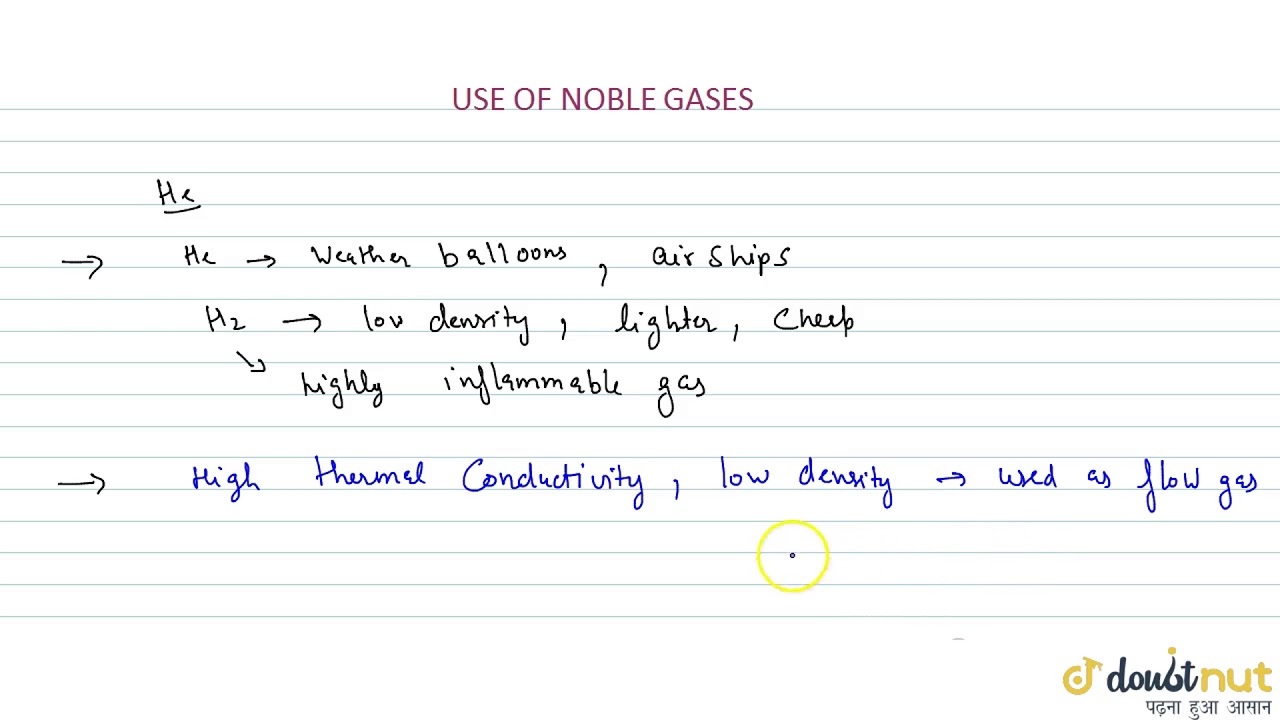 USE OF NOBLE GASES
He
→ He → Weather balloons, air ships
H2 → low density, lighter, Cheap
↘ highly inflammable gas
→ High thermal Conductivity, low density → used as flow gas
doubtnut
पढ़ना हुआ आसान